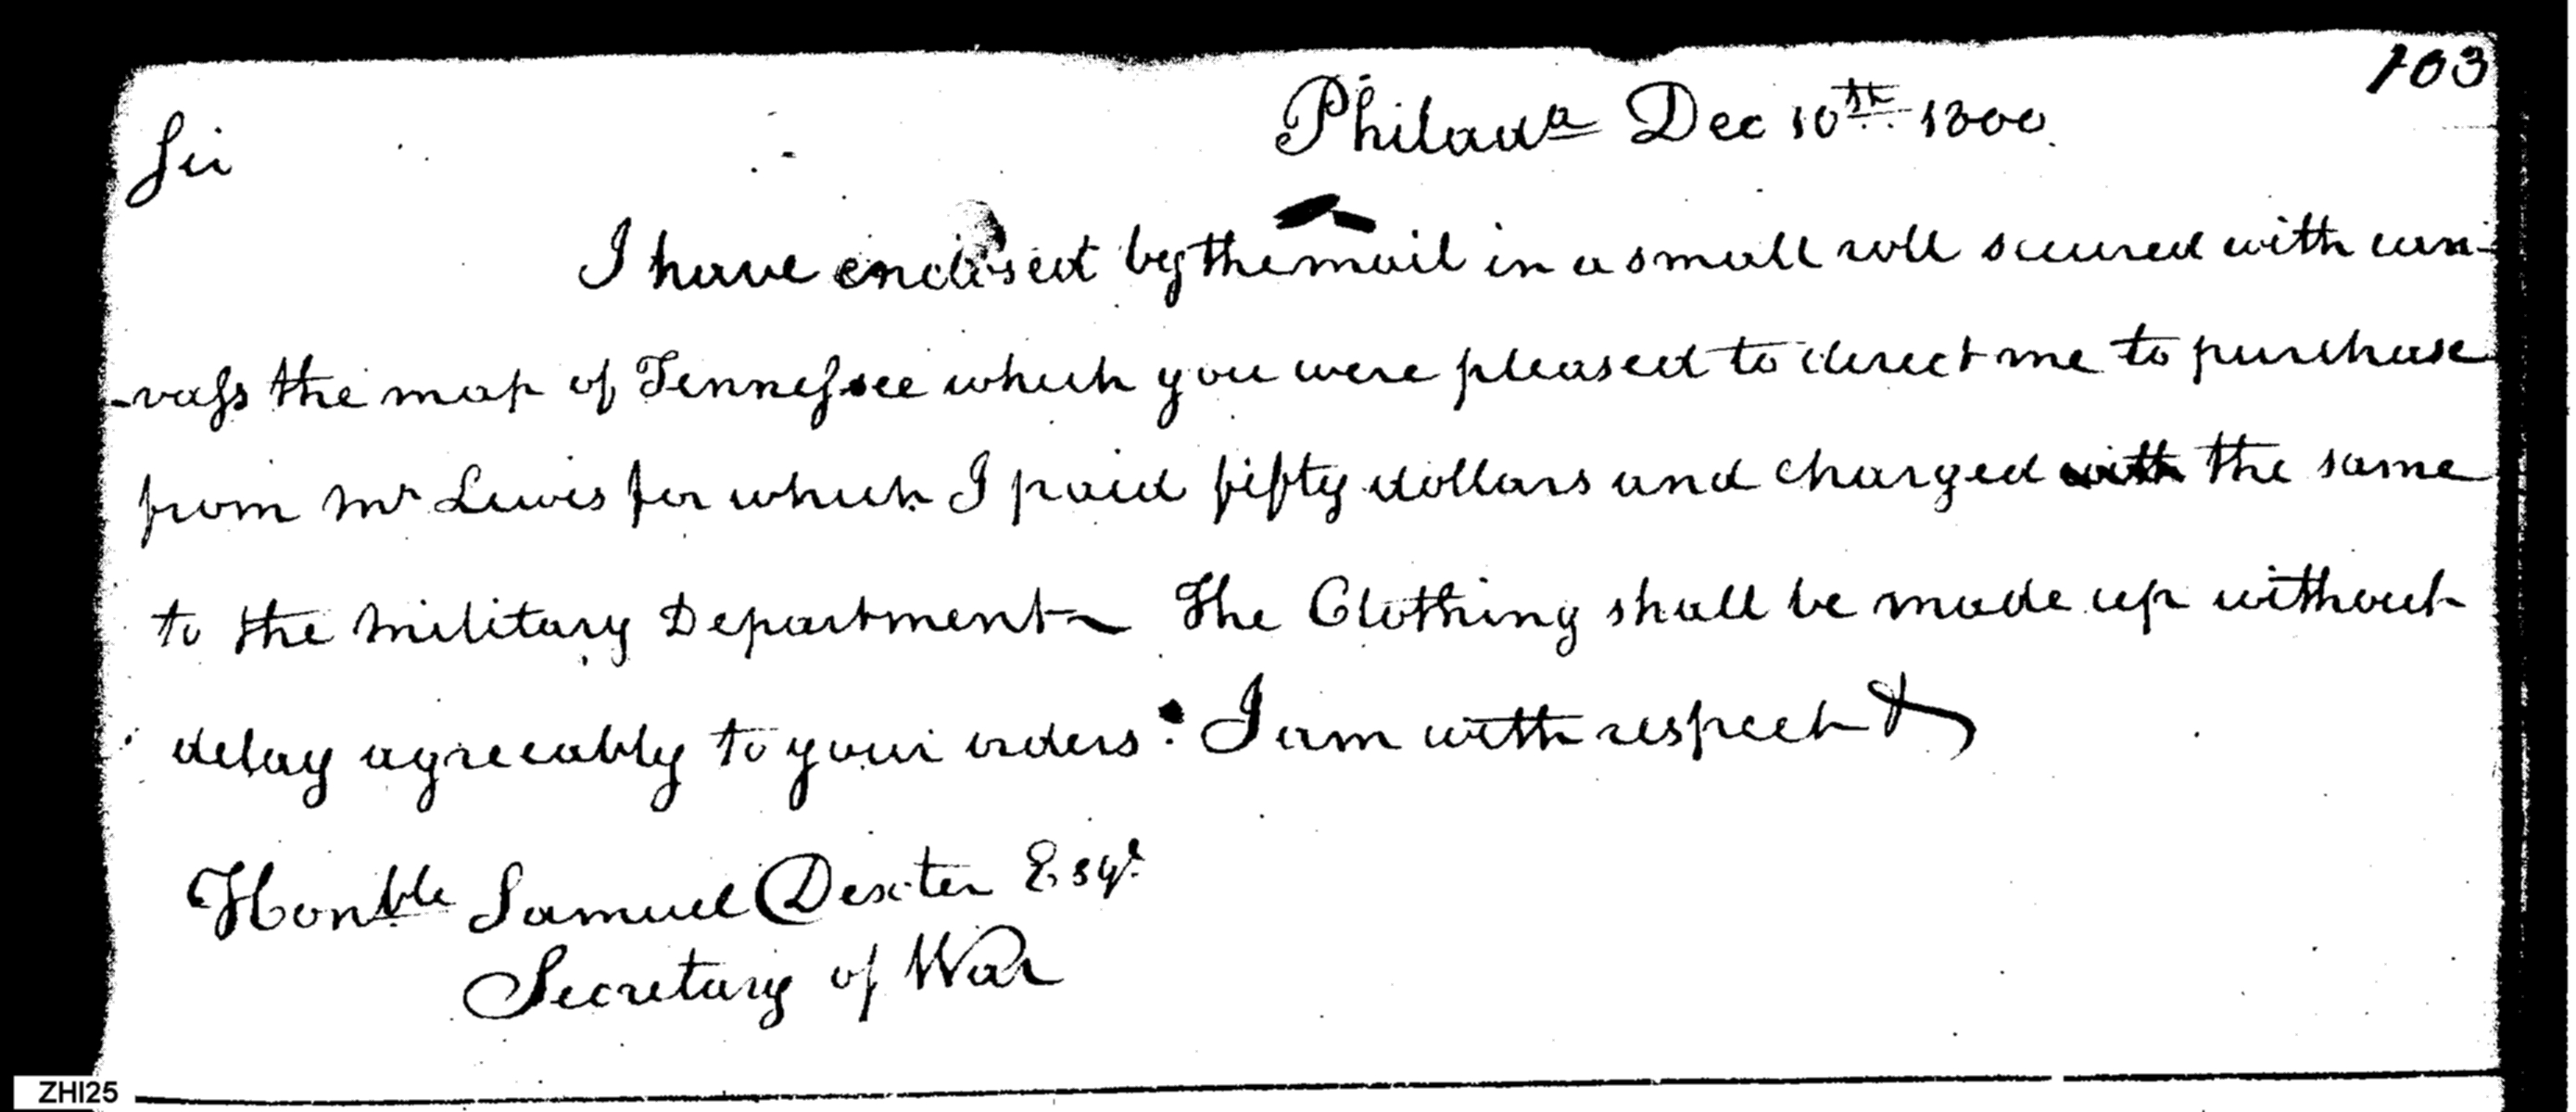 103
Philada Dec 10th 1800.
Sir
I have enclosed by the mail in a small roll secured with can-
-vass the map of Tennessee which you were pleased to direct me to purchase
from Mr Lewis for which I paid fifty dollars and charged with the same
to the Military Department The Clothing shall be made up without
delay agreeably to your orders. I am with respect &
Honble Samuel Dexter Esqr
Secretary of War
ZHI25